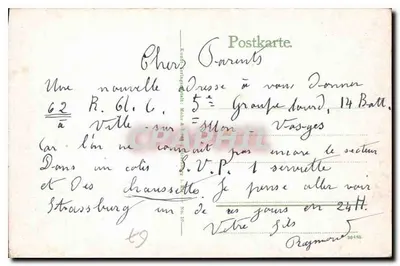 Postkarte.
Chers Parents
Une nouvelle adresse à vous donner
62 R. G. C. 5e Groupe lourd, 14 Batt.
à Ville sur Illon Vosges
Car l'on ne connait pas encore le secteur
Dans un colis S.V.P. 1 serviette
et des chaussettes. Je pense aller voir
Strassburg un de ces jours en 24H.
Votre fils
Raymond